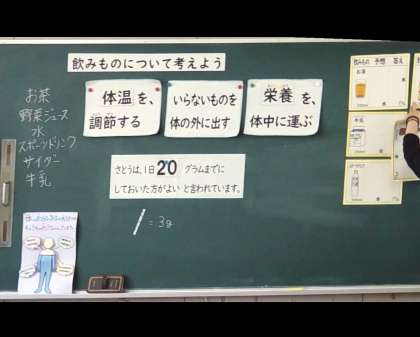 飲みものについて考えよう
体温を、
調節する
いらないものを
体の外に出す
栄養を、
体中に運ぶ
お茶
野菜ジュース
水
スポーツドリンク
サイダー
牛乳
さとうは、1日20グラムまでに
しておいた方がよいと言われています。
= 3g
飲みもの 予想 答え
お茶
牛乳